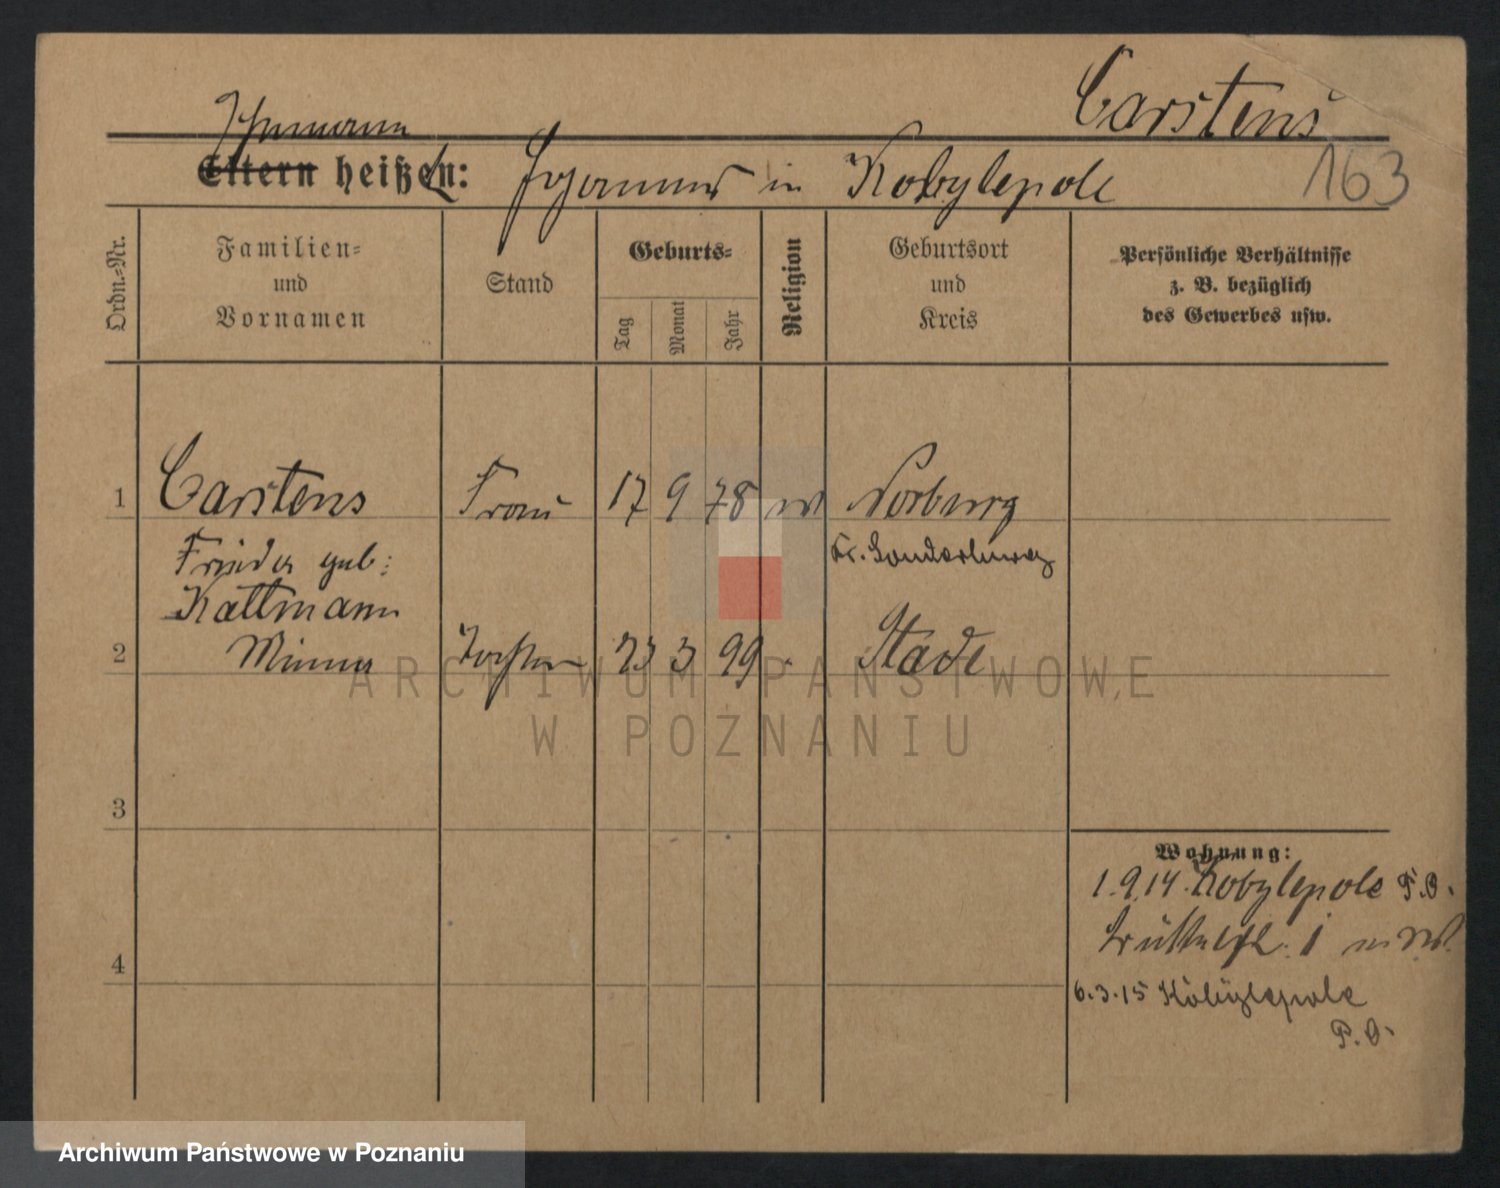 Carstens
Ehemann
Eltern heißen: Johannes in Kobylepole
163
Ordn.-Nr.
Familien-
und
Vornamen
Stand
Geburts-
Tag
Monat
Jahr
Religion
Geburtsort
und
Kreis
Persönliche Verhältnisse
z. B. bezüglich
des Gewerbes usw.
1 Carstens Frau 17 9 78 Norburg
Frieda geb: Kr. Sonderburg
Kattmann
2 Minna Tochter 23 3 99 Stade
ARCHIWUM PAŃSTWOWE
W POZNANIU
3
Wohnung:
1.9.14. Kobylepole P.O.
4
6.3.15 Kobylepole
P.O.
Archiwum Państwowe w Poznaniu